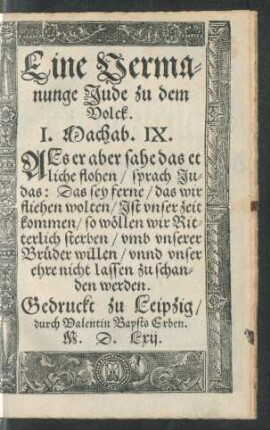 Eine Verma-
nunge Jude zu dem
Volck.
I. Machab. IX.
ALs er aber sahe das et
liche flohen / sprach Ju-
das: Das sey ferne / das wir
fliehen wolten / Ist vnser zeit
kommen / so wöllen wir Rit-
terlich sterben / vmb vnserer
Brüder willen / vnnd vnser
ehre nicht lassen zu schan-
den werden.
Gedruckt zu Leipzig /
durch Valentin Bapsts Erben.
M. D. Lxij.